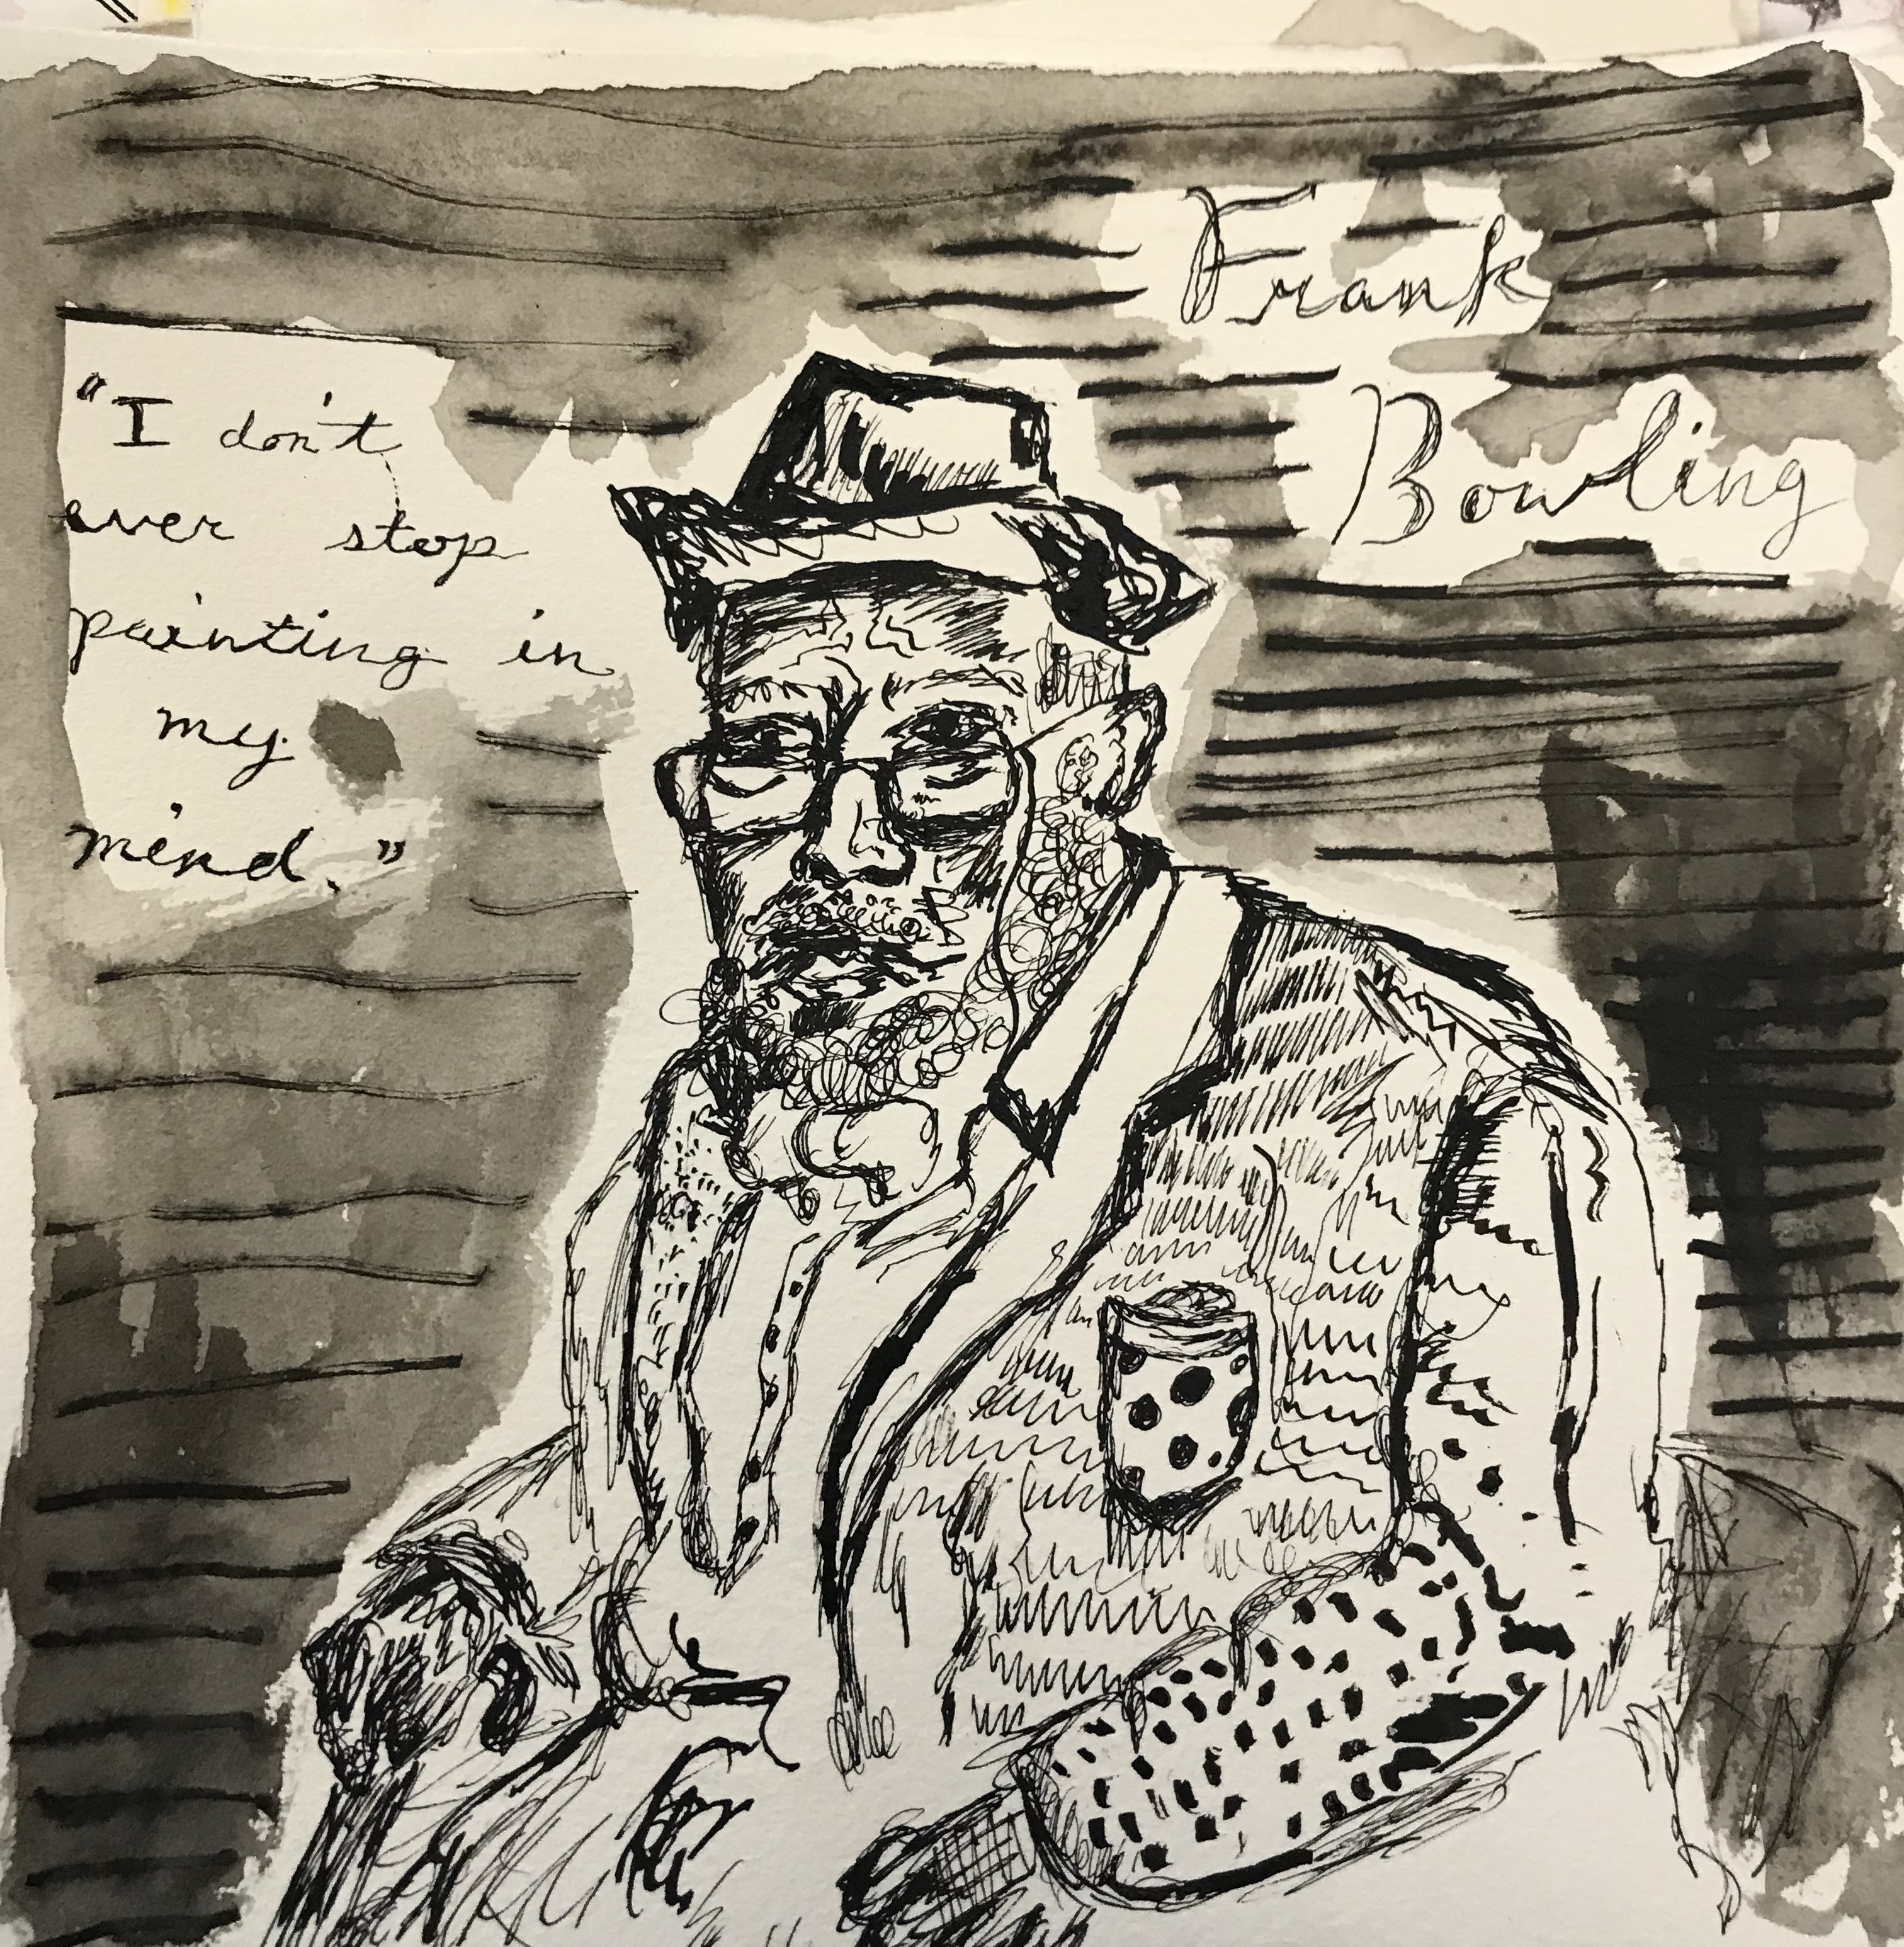 Frank
Bowling
"I don't
ever stop
painting in
my
mind."